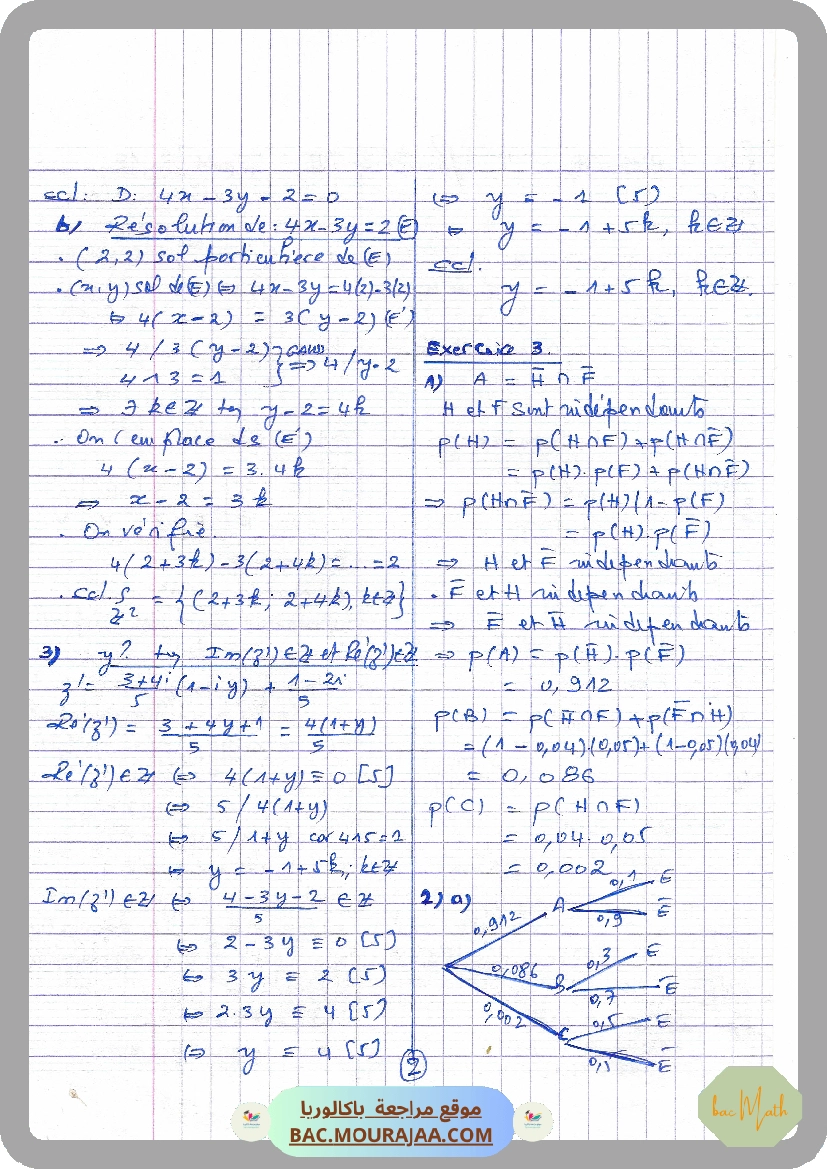 ccl: D: 4x - 3y - 2 = 0
b) Résolution de : 4x - 3y = 2 (E)
. (2,2) sol particulière de (E)
. (x,y) sol de (E) ⇔ 4x - 3y = 4(2) - 3(2)
⇔ 4(x-2) = 3(y-2) (E')
⇒ 4 / 3(y-2)
4 ∧ 3 = 1 } ⇒ 4 / y-2
⇒ ∃ k∈ℤ tq y-2 = 4k
. On remplace ds (E')
4(x-2) = 3.4k
⇒ x-2 = 3k
. On vérifie.
4(2+3k) - 3(2+4k) = ... = 2
. ccl. S ℤ² = {(2+3k; 2+4k), k∈ℤ}
3) y? tq Im(z')∈ℤ et Ré(z')∈ℤ
z' = 3+4i/5 (1-iy) + 1-2i/5
Ré(z') = 3+4y+1/5 = 4(1+y)/5
Ré(z')∈ℤ ⇔ 4(1+y) ≡ 0 [5]
⇔ 5 / 4(1+y)
⇔ 5 / 1+y car 4∧5=1
⇔ y = -1+5k; k∈ℤ
Im(z')∈ℤ ⇔ 4-3y-2/5 ∈ ℤ
⇔ 2-3y ≡ 0 [5]
⇔ 3y ≡ 2 [5]
⇔ 2.3y ≡ 4 [5]
⇔ y ≡ 4 [5]
⇔ y ≡ -1 [5]
⇔ y = -1+5k, k∈ℤ
ccl.
y = -1+5k, k∈ℤ.
Exercice 3.
1) A = H̄ ∩ F̄
H et F sont indépendants
p(H) = p(H∩F) + p(H∩F̄)
= p(H).p(F) + p(H∩F̄)
⇒ p(H∩F̄) = p(H)(1-p(F)
= p(H).p(F̄)
⇒ H et F̄ indépendants
. F̄ et H indépendants
⇒ F̄ et H̄ indépendants
⇒ p(A) = p(H̄).p(F̄)
= 0,912
p(B) = p(H̄∩F) + p(F̄∩H)
= (1-0,04).(0,05) + (1-0,05)(0,04)
= 0,086
p(C) = p(H∩F)
= 0,04.0,05
= 0,002
2) a)
0,912 A 0,1 E
0,9 Ē
0,086 B 0,3 E
0,7 Ē
0,002 C 0,5 E
0,5 Ē
2
موقع مراجعة باكالوريا
BAC.MOURAJAA.COM
bac Math